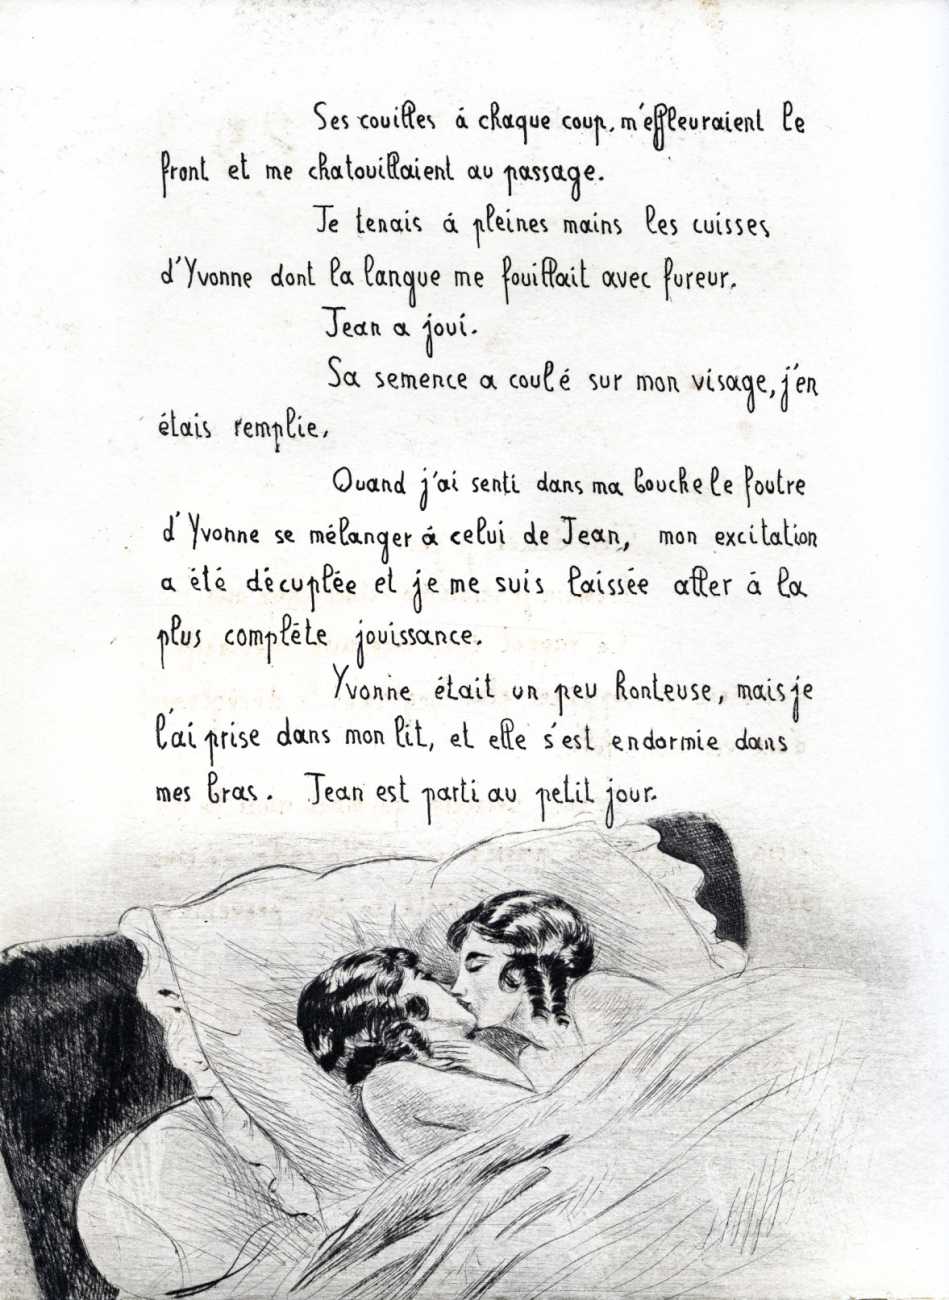 Ses couilles á chaque coup, m'effleuraient le
front et me chatouillaient au passage.
Je tenais á pleines mains les cuisses
d'Yvonne dont la langue me fouillait avec fureur.
Jean a joui.
Sa semence a coulé sur mon visage, j'en
étais remplie.
Quand j'ai senti dans ma bouche le foutre
d'Yvonne se mélanger á celui de Jean, mon excitation
a été décuplée et je me suis laissée aller á la
plus complète jouissance.
Yvonne était un peu honteuse, mais je
l'ai prise dans mon lit, et elle s'est endormie dans
mes bras. Jean est parti au petit jour.